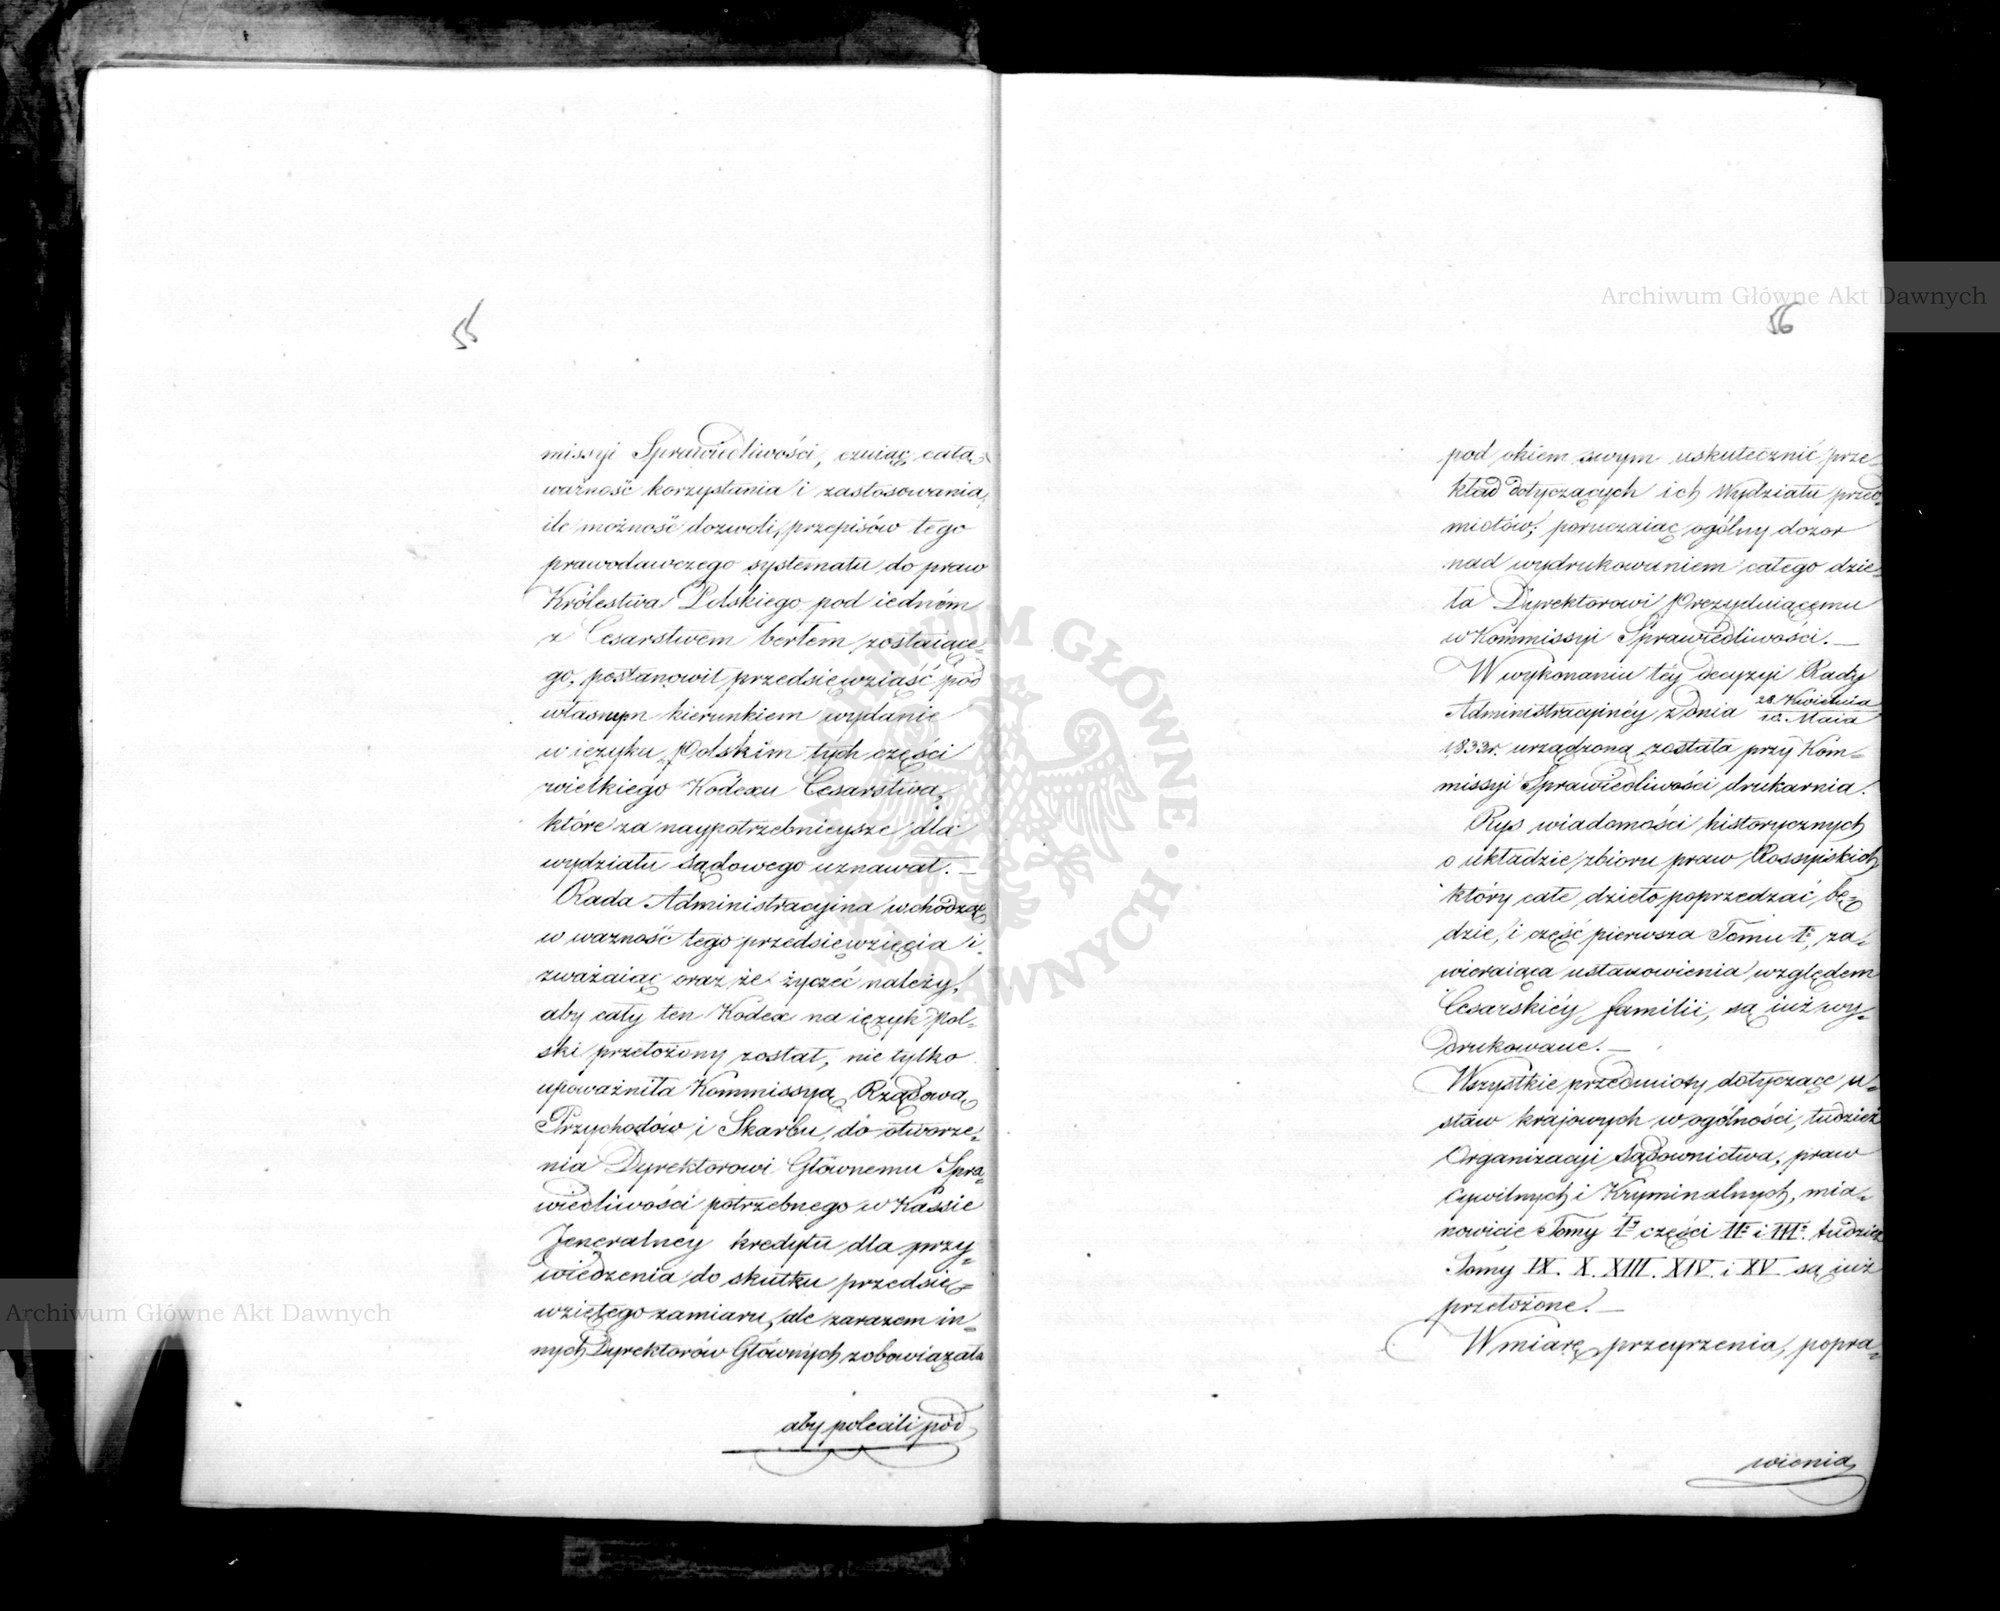 55
missyi Sprawiedliwości, czuiąc całą
ważność korzystania i zastosowania,
ile możność dozwoli, przepisów tego
prawodawczego systematu do praw
Królestwa Polskiego pod iedném
z Cesarstwem berłem zostaiące-
go, postanowił przedsięwziaść pod
własnym kierunkiem wydanie
w ięzyku Polskim tych części
wielkiego Kodexu Cesarstwa,
które za naypotrzebnieysze dla
wydziału Sądowego uznawał. —
Rada Administracyina wchodząc
w ważność tego przedsięwzięcia i
zważaiąc oraz że życzeć należy,
aby cały ten Kodex na ięzyk Pol-
ski przełożony został, nie tylko
upoważniła Kommissyą Rządową
Przychodów i Skarbu, do otworze-
nia Dyrektorowi Głównemu Spra-
wiedliwości potrzebnego w Kassie
Jeneralney kredytu dla przy-
wiedzenia do skutku przedsię-
wziętego zamiaru, ale zarazem in-
nych Dyrektorów Głównych zobowiązała
aby polecili pod
56
pod okiem swym uskutecznić prze-
kład dotyczących ich Wydziału przed-
miotów; poruczaiąc ogólny dozor
nad wydrukowaniem całego dzie-
ła Dyrektorowi Prezyduiącemu
w Kommissyi Sprawiedliwości. —
W wykonaniu téy decyzyi Rady
Administracyinéy z dnia 28 Kwietnia/10 Maia
1833r. urządzoną została przy Kom-
missyi Sprawiedliwości drukarnia.
Rys wiadomości historycznych
o układzie zbioru praw Rossyiskich
który całe dzieło poprzedzać bę-
dzie, i część pierwsza Tomu Iº za-
wieraiąca ustanowienia względem
Cesarskiéy familii, są iuż wy-
drukowane. —
Wszystkie przedmioty dotyczące u-
staw krajowych w ogólności, tudzież
Organizacyi Sądownictwa, praw
Cywilnych i Kryminalnych, mia-
nowicie Tomy Iº części IIª i IIIª tudzież
Tomy IX. X. XIII. XIV. i XV są iuż
przełożone. —
W miarę przeyrzenia, popra-
wienia
Archiwum Główne Akt Dawnych
Archiwum Główne Akt Dawnych
ARCHIWUM GŁÓWNE AKT DAWNYCH